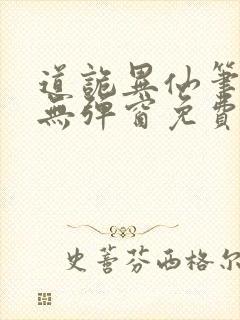 道詭異仙筆
無彈窗免費
史蒈芬西格尔